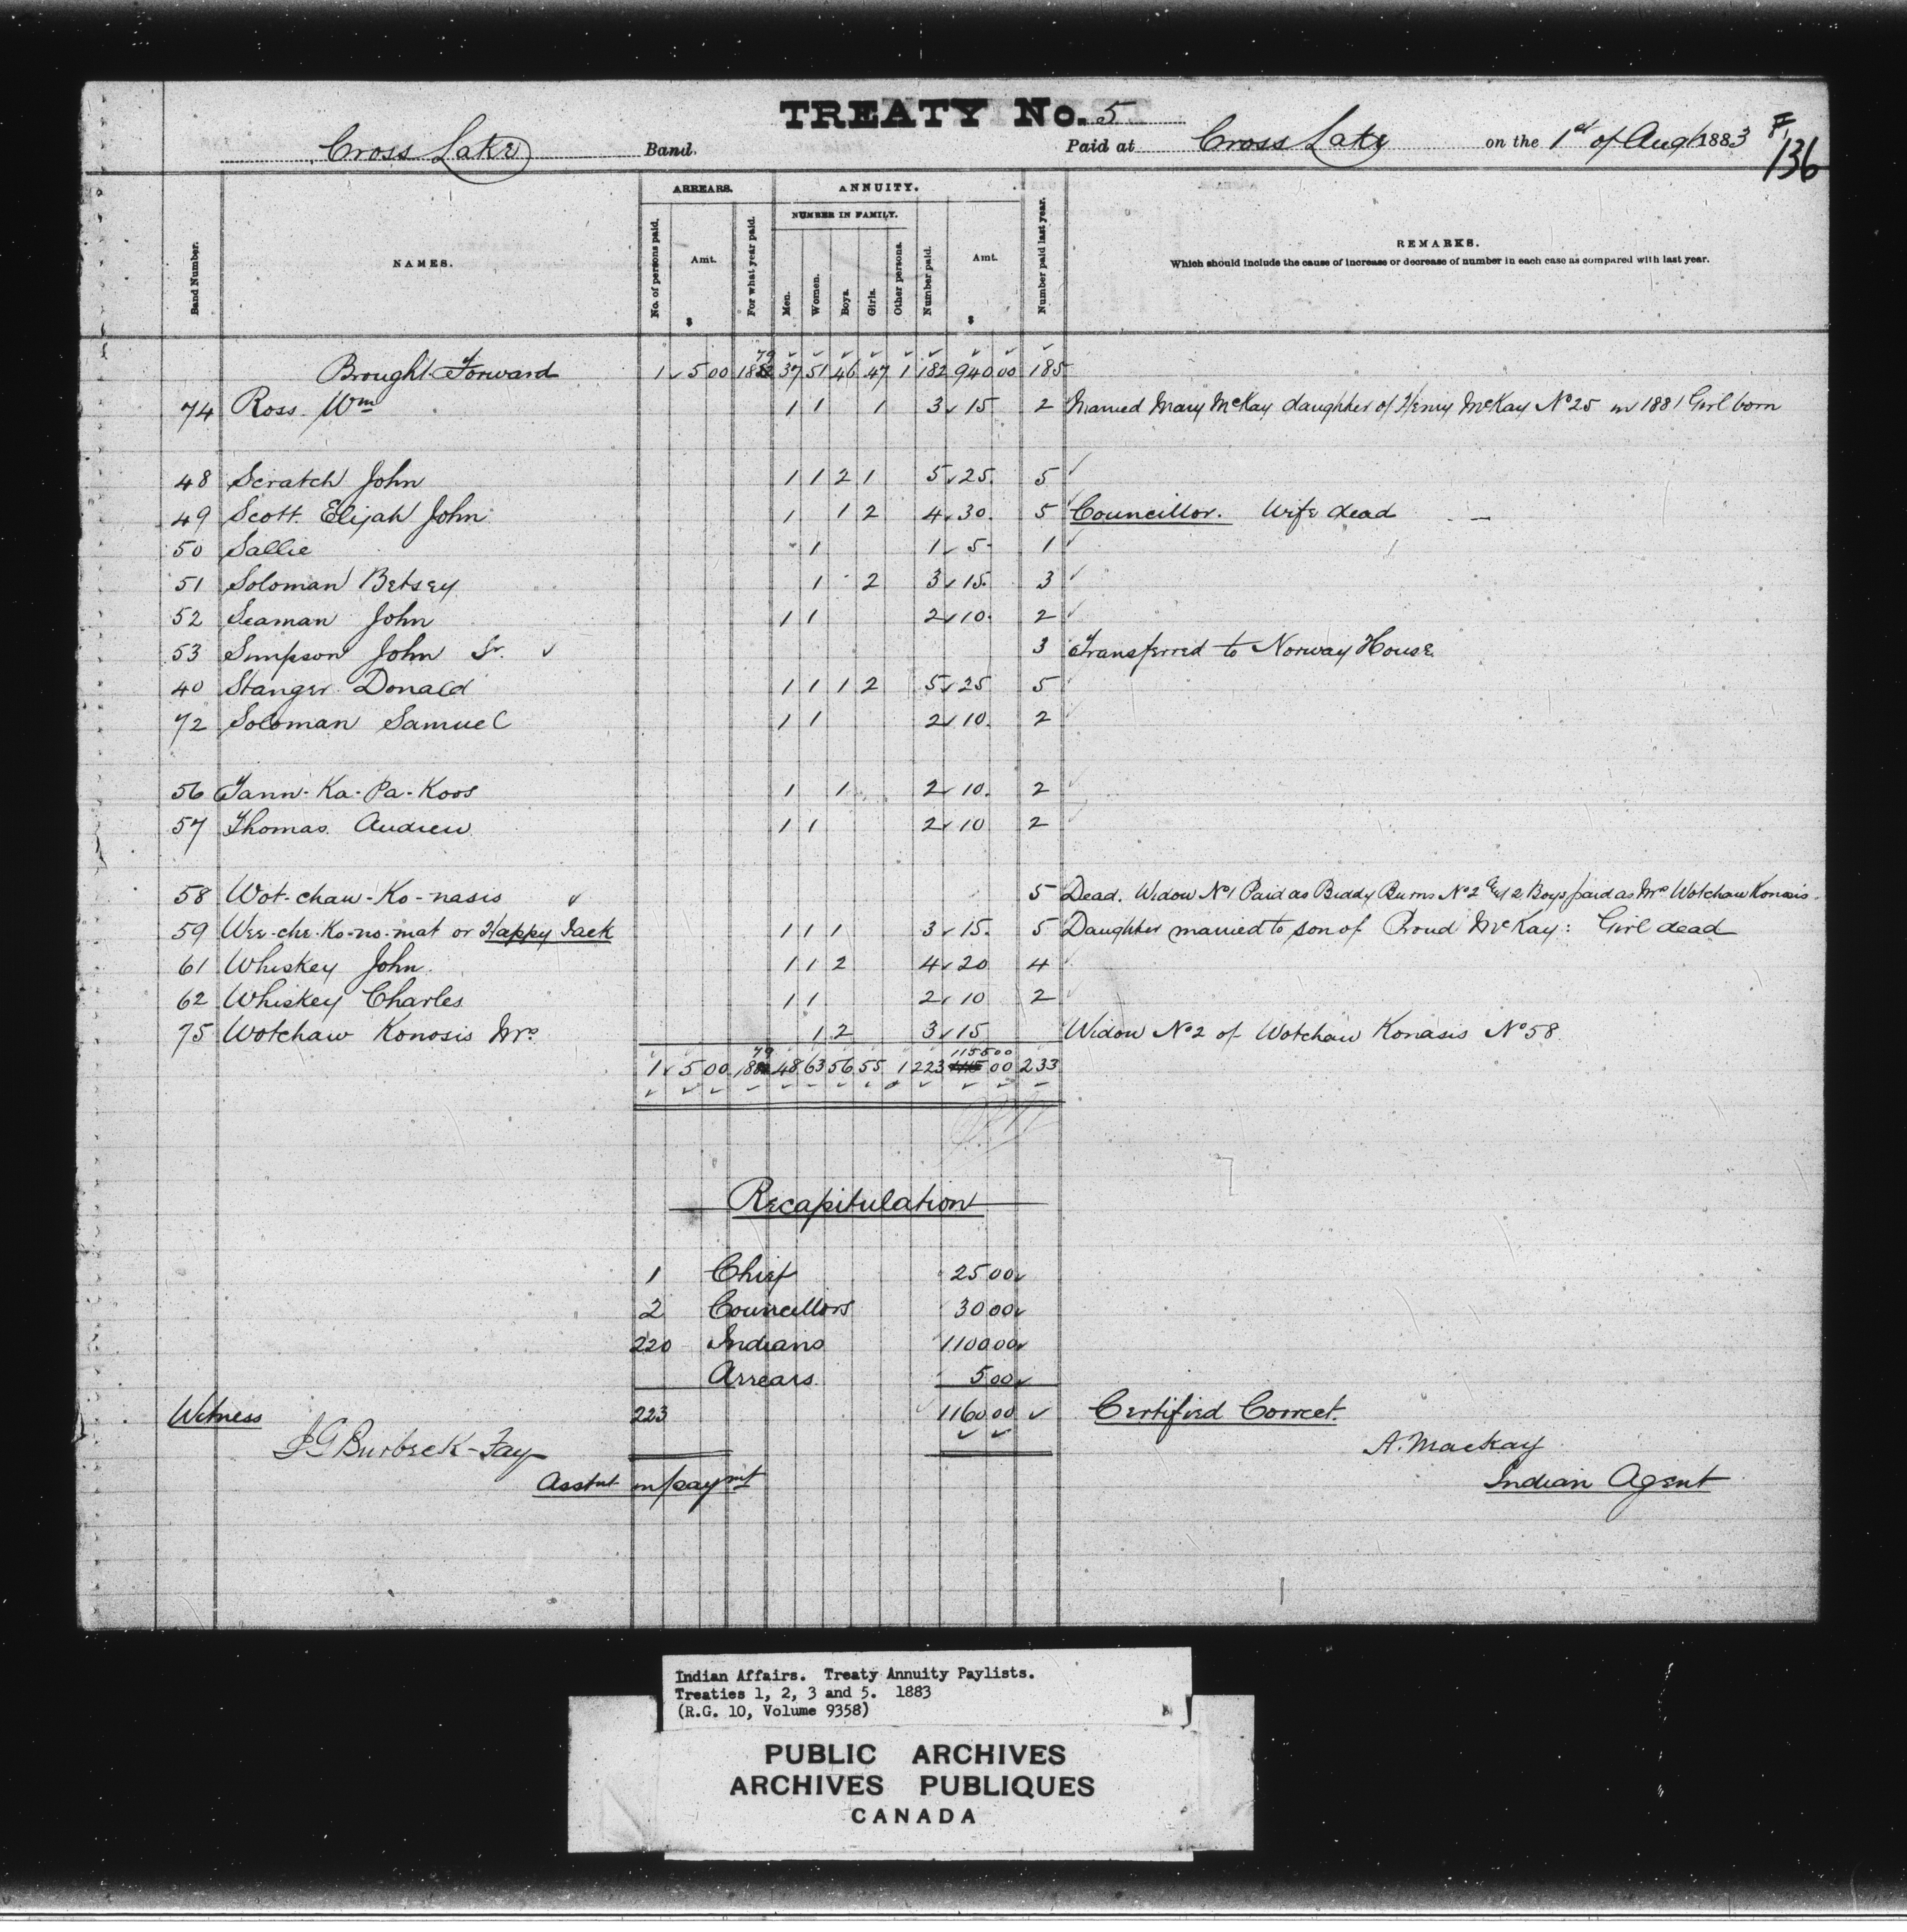 TREATY No. 5
Cross Lake Band. Paid at Cross Lake on the 1st of Augt 1883
136
ARREARS. ANNUITY.
NUMBER IN FAMILY.
Band Number. NAMES. No. of persons paid. Amt. $ For what year paid. Men. Women. Boys. Girls. Other persons. Number paid. Amt. $ Number paid last year. REMARKS.
Which should include the cause of increase or decrease of number in each case as compared with last year.
Brought Forward 1 5 00 79 37 51 46 47 1 182 940 00 185
74 Ross Wm 1 1 1 3 15 2 Married Mary McKay daughter of Henry McKay No 25 in 1881 Girl born
48 Scratch John 1 1 2 1 5 25. 5
49 Scott. Elijah John 1 1 2 4 30. 5 Councillor. Wife dead
50 Sallie 1 1 5 1
51 Soloman Betsey 1 2 3 15. 3
52 Seaman John 1 1 2 10. 2
53 Simpson John Sr. 3 Transferred to Norway House.
40 Stanger Donald 1 1 1 2 5 25 5
72 Soloman Samuel 1 1 2 10. 2
56 Tann-Ka-Pa-Koos 1 1 2 10. 2
57 Thomas Andrew 1 1 2 10 2
58 Wot-chaw-Ko-nasis 5 Dead. Widow No 1 Paid as Biddy Burns No 2 & 2 Boys paid as Mrs Wotchaw Konasis.
59 Wee-che-Ko-no-mat or Happy Jack 1 1 1 3 15. 5 Daughter married to son of Proud McKay: Girl dead
61 Whiskey John 1 1 2 4 20 4
62 Whiskey Charles 1 1 2 10 2
75 Wotchaw Konosis Mrs 1 2 3 15 Widow No 2 of Wotchaw Konasis No 58
1 5 00 79 48 63 56 55 1 223 1155 00 233
Recapitulation
1 Chief 25 00
2 Councillors 30 00
220 Indians 1100 00
Arrears. 5 00
223 1160 00
Witness
J G Burbeck-Fay
Asstnt in/paymt
Certified Correct.
A. Mackay
Indian Agent
Indian Affairs. Treaty Annuity Paylists.
Treaties 1, 2, 3 and 5. 1883
(R.G. 10, Volume 9358)
PUBLIC ARCHIVES
ARCHIVES PUBLIQUES
CANADA